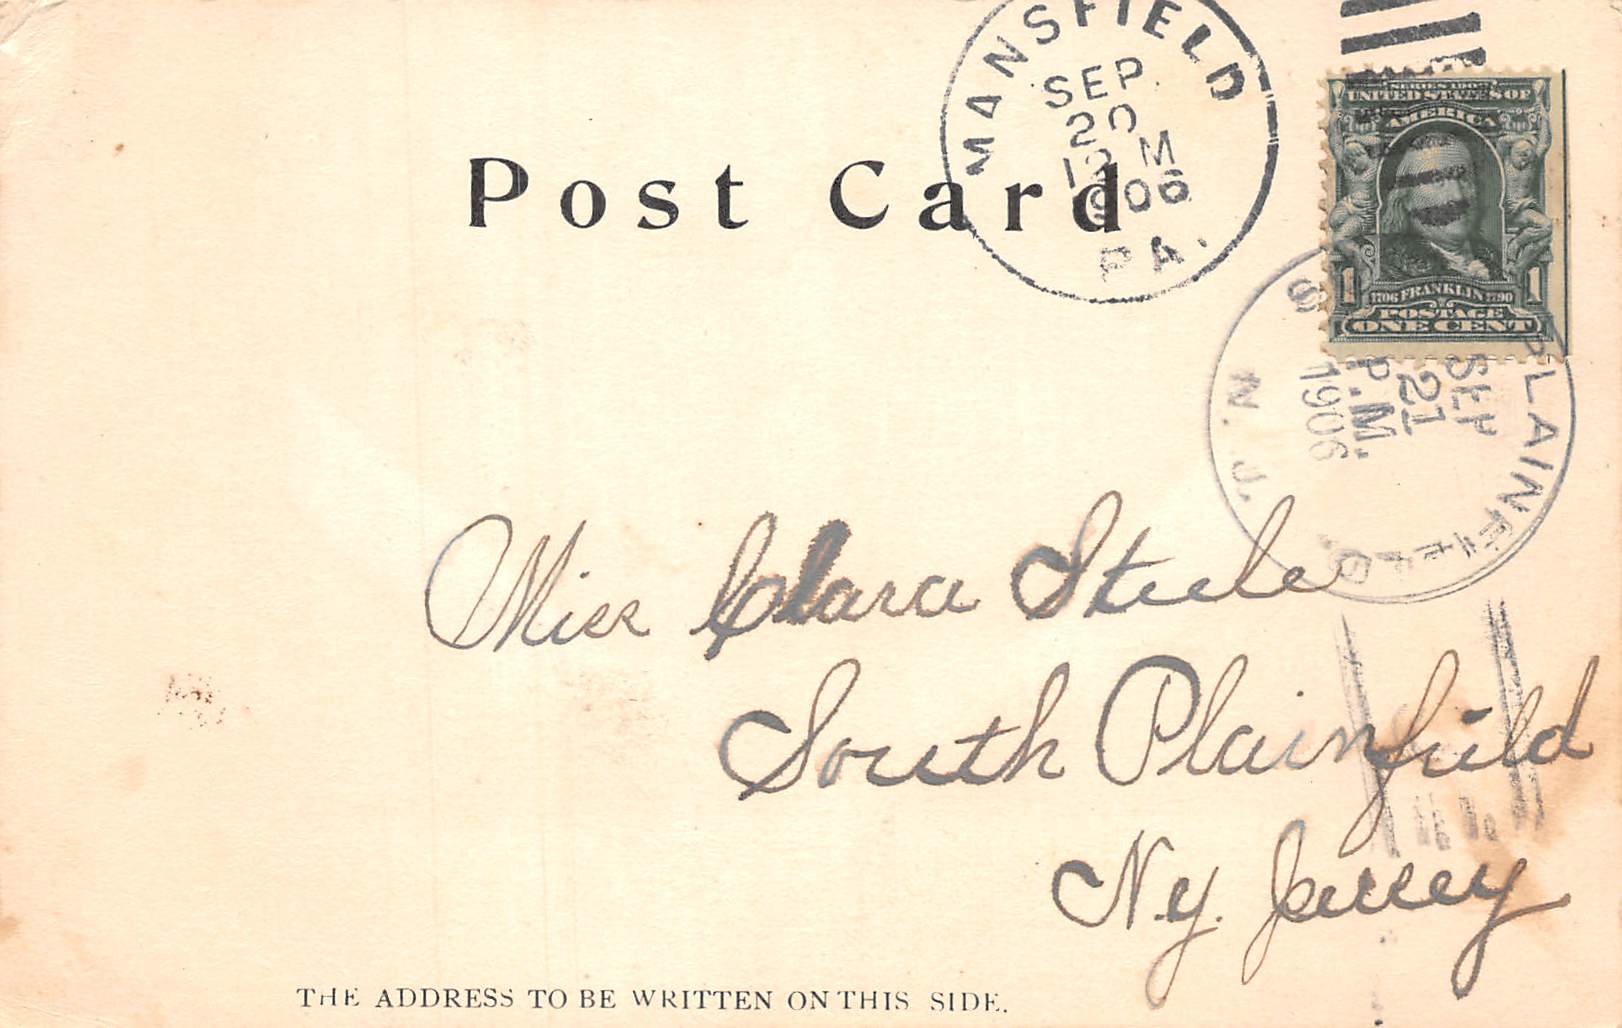 MANSFIELD
SEP
20
12 M
1906
PA.
Post Card
SERIES 1902
UNITED STATES OF
AMERICA
1 1
1706 FRANKLIN 1790
POSTAGE
ONE CENT
S. PLAINFIELD.
N.J.
SEP
21
P.M.
1906
Miss Clara Steele
South Plainfield
N.y. Jersey
THE ADDRESS TO BE WRITTEN ON THIS SIDE.